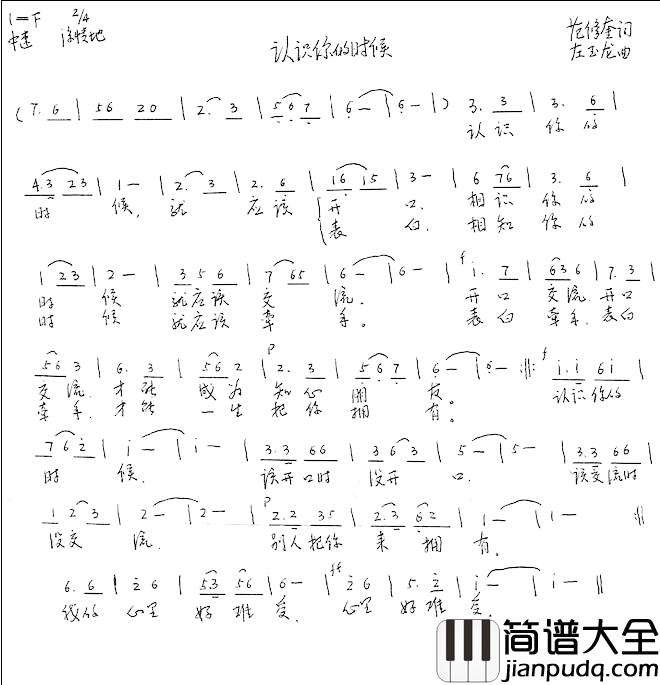 1=F 2/4
中速 深情地
认识你的时候
范修奎词
左玉龙曲
(7. 6 | 56 20 | 2. 3 | 5 6 7 | 6 - | 6 - | ) 3. 3 | 3. 6 |
认识 你的
4.3 23 | 1 - | 2. 3 | 2. 6 | 16 15 | 3 - | 6 76 | 3. 6 |
时 候, 就 应该 开 口, 相识 你的
表 白, 相知 你的
1 23 | 2 - | 3 5 6 | 7 65 | 6 - | 6 - | f i. 7 | 636 | 7. 3 |
时 候 就应该 交 流。 开口 交流, 开口
时 候 就应该 牵 手。 表白 牵手, 表白
56 3 | 6. 3 | 56 2 | p 2. 3 | 5 6 7 | 6 - | 6 - :‖: f i.i 6i |
交流, 才能 成为 知心 朋 友。 认识你的
牵手, 才能 一生 把你 拥 有。
7 6 2 | i - | i - | 3.3 66 | 3 6 3 | 5 - | 5 - | 3.3 66 |
时 候, 该开口时 没开 口, 该交流时
1 2 3 | 2 - | 2 - | p 2.2 35 | 2.3 62 | 1 - | 1 - :‖
没交 流。 别人把你 来 拥 有。
6. 6 | 2 6 | 53 56 | 6 - | ff 2 6 | 5. 2 | i - | i - ‖
我的 心里 好难 受, 心里 好难 受。
简谱大全
jianpudq.com